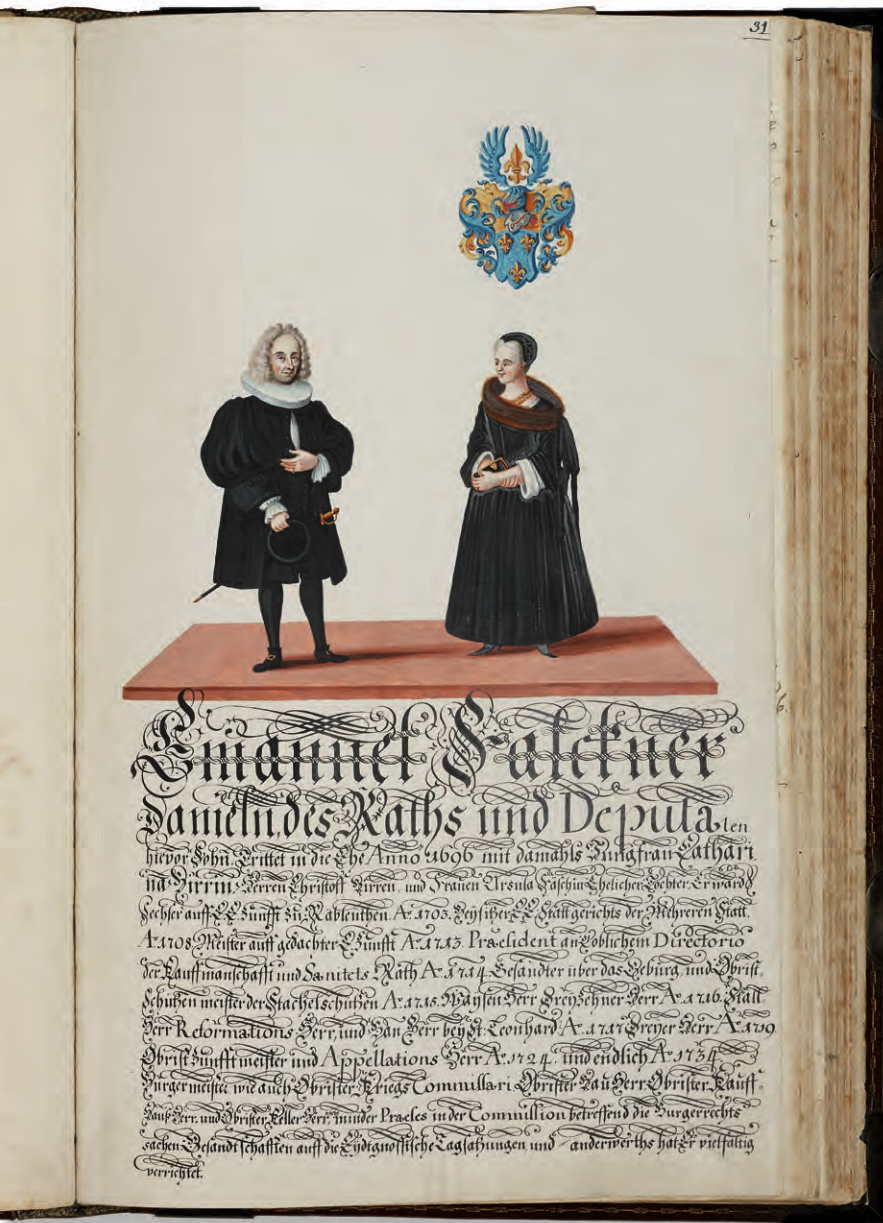 31
Emanuel Falckner
Danieln, des Raths und Deputaten
hievor Sohn. Trittet in die Ehe Anno 1696 mit damahls Jungfrau Cathari
na Birrin, Herren Christoff Birren, und Frauen Ursula Fäschin Ehelicher Tochter. Er ward
Sechser auff EE Zunfft zu Räbleuthen A.º 1703. Beysitzer EE Stattgerichts der Mehreren Statt
A.º 1708. Meister auff gedachter E Zunfft A.º 1713. Præsident an Loblichem Directorio
der Kauffmanschafft und Sanitets Rath A.º 1714. Gesandter über das Gebürg, und Obrist
Schützen meister der Stachelschützen A.º 1715. Waysen Herr Dreyzehner Herr A.º 1716. Stall
Herr Reformations Herr, und Bau Herr bey St. Leonhard A.º 1717 Dreyer Herr A.º 1719
Obrist Zunfftmeister und Appellations Herr A.º 1724. und endlich A.º 1734
Burgermeister wie auch Obrister Kriegs Commissari, Obrister Bau Herr Obrister Kauff-
hauß Herr, und Obrister Keller Herr, minder Præses in der Commission betreffend die Burgerrechts
sachen Gesandtschafften auff die Eydtgnossische Tagsatzungen, und anderwerths hat Er vielfaltig
verrichtet.